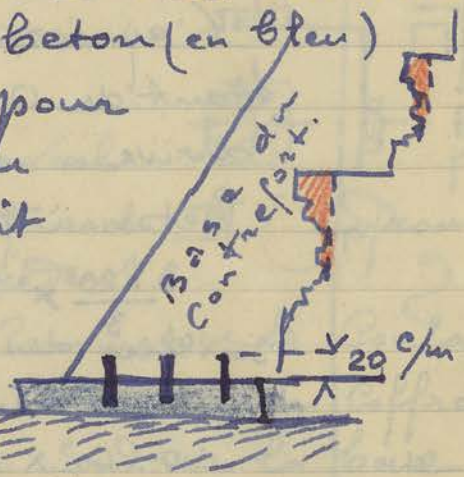 beton (en bleu)
pour
u
it
Base du
Contrefort.
20 c/m